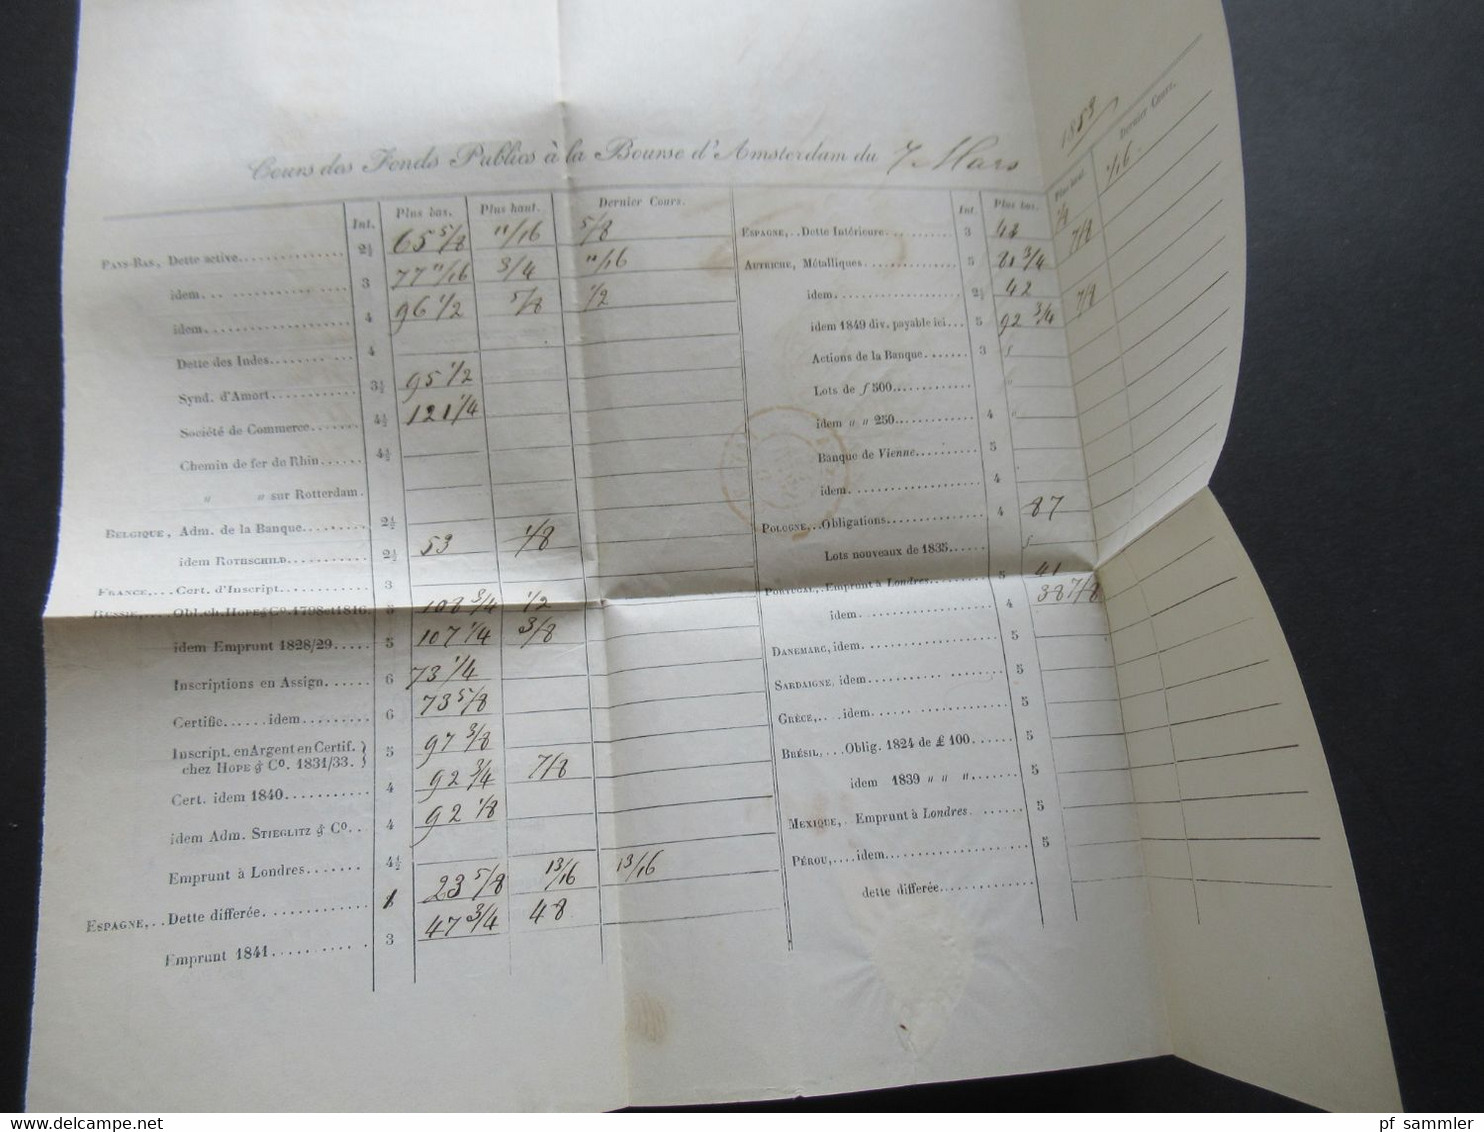 Cours des Fonds Publics à la Bourse d'Amsterdam du 7 Mars 1853
Int. Plus bas. Plus haut. Dernier Cours.
PAYS-BAS, Dette active 2½ 65 5/8 11/16 5/8
idem 3 77 11/16 3/4 11/16
idem 4 96 1/2 5/8 1/2
Dette des Indes 4
Synd. d'Amort 3½ 95 1/2
Société de Commerce 4½ 121 1/4
Chemin de fer de Rhin 4½
" " sur Rotterdam.
BELGIQUE, Adm. de la Banque 2½
idem ROTHSCHILD 2½ 53 1/8
FRANCE, Cert. d'Inscript. 3
RUSSIE, Obl. ch. HOPE & Co. 1798 et 1816 5 108 3/4 1/2
idem Emprunt 1828/29 5 107 1/4 3/8
Inscriptions en Assign. 6 73 1/4
Certific. idem 6 73 5/8
Inscript. en Argent en Certif. } 5 97 3/8
chez HOPE & Co. 1831/33. }
Cert. idem 1840 4 92 3/4 7/8
idem Adm. STIEGLITZ & Co. 4 92 1/8
Emprunt à Londres 4½
ESPAGNE, Dette differée 1 23 5/8 13/16 13/16
Emprunt 1841 3 47 3/4 48
Int. Plus bas. Plus haut. Dernier Cours.
ESPAGNE, Dette Intérieure 3 43 1/16
AUTRICHE, Métalliques 5 81 3/4 7/8
idem 2½ 42
idem 1849 div. payable ici 5 92 3/4 7/8
Actions de la Banque 3 f
Lots de f 500 "
idem " " 250 4 "
Banque de Vienne 5
idem 4
POLOGNE, Obligations 4 87
Lots nouveaux de 1835 f
PORTUGAL, Emprunt à Londres 5 41
idem 4 38 7/8
DANEMARC, idem 5
SARDAIGNE, idem 5
GRÈCE, idem 5
BRÉSIL, Oblig. 1824 de £ 100 5
idem 1839 " " " 5
MEXIQUE, Emprunt à Londres 5
PÉROU, idem 5
dette différée
www.delcampe.net
pf_sammler